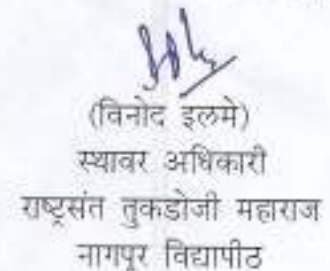 (विनोद इलमे)
स्थावर अधिकारी
राष्ट्रसंत तुकडोजी महाराज
नागपूर विद्यापीठ